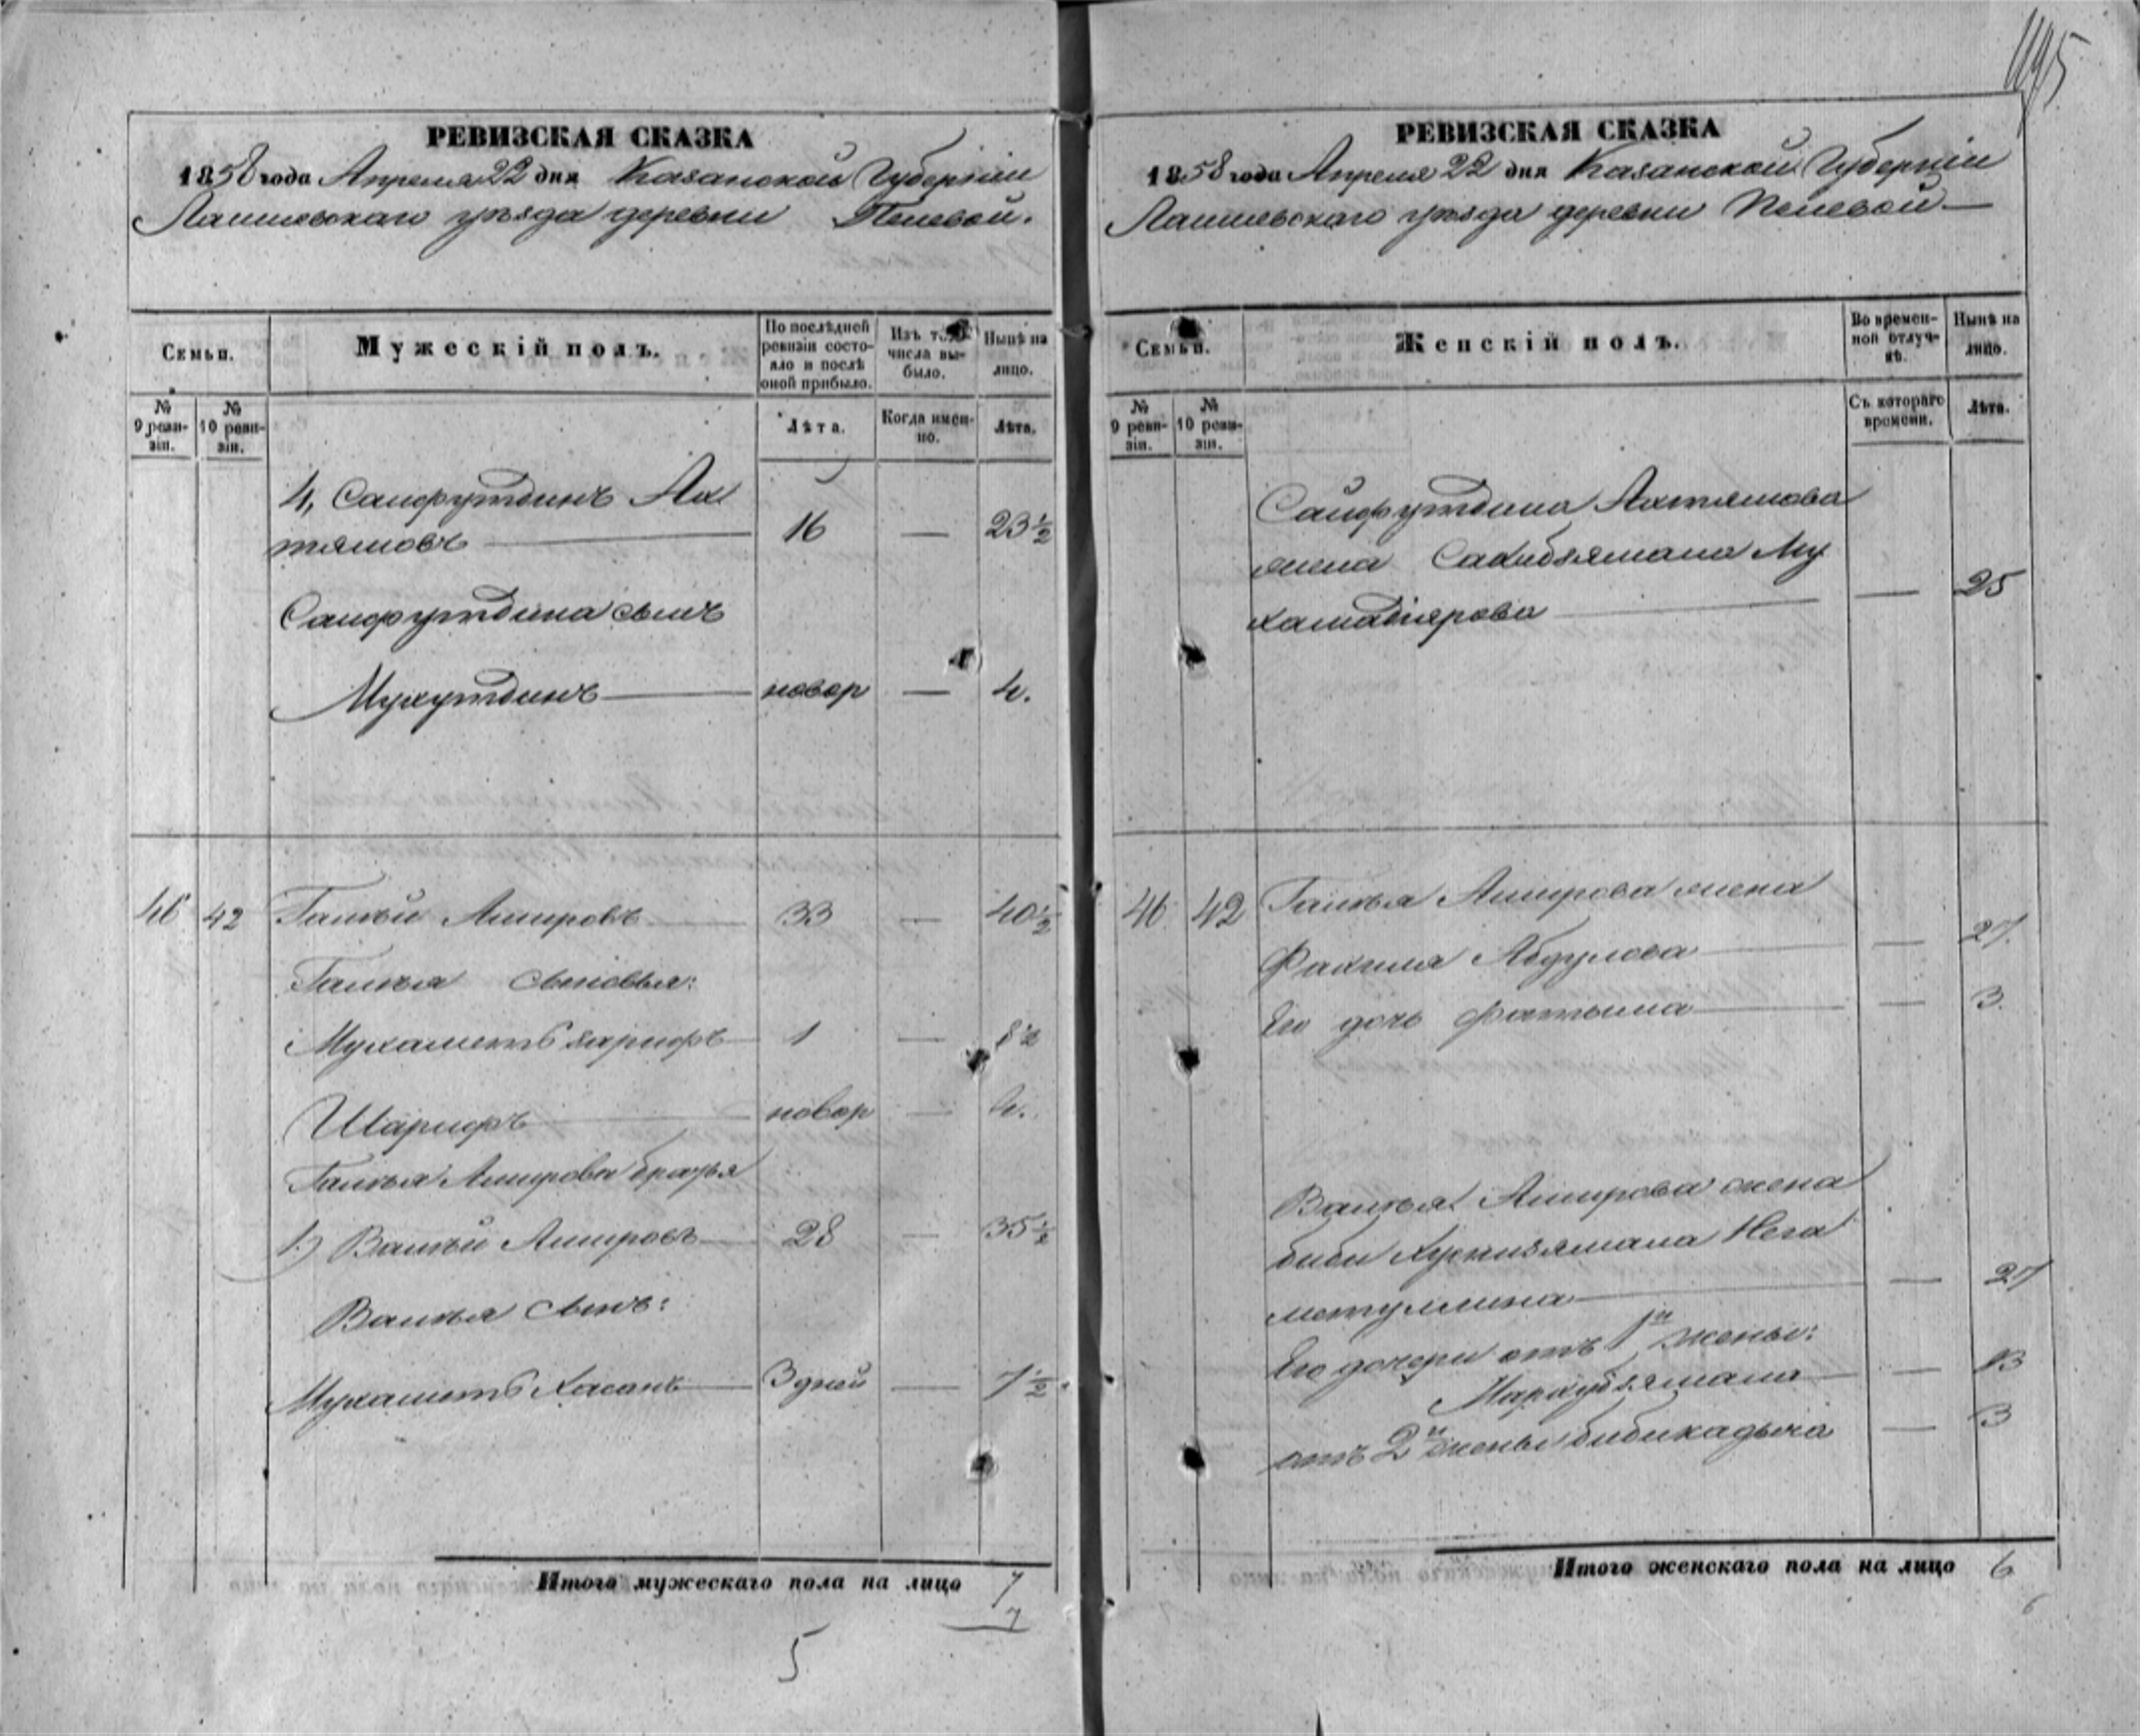 1195
РЕВИЗСКАЯ СКАЗКА
1858 года Апреля 22 дня Казанской Губерніи
Лаишевскаго уѣзда деревни Пелевой.
Семьи.
Мужескій полъ.
По послѣдней ревизіи состояло и послѣ оной прибыло.
Изъ того числа выбыло.
Нынѣ на лицо.
№ 9 ревизіи.
№ 10 ревизіи.
Лѣта.
Когда именно.
Лѣта.
4, Сайфутдинъ Ах
тямовъ 16 — 23½
Сайфутдина сынъ
Мухутдинъ новор — 4.
46 42 Галѣй Амировъ 33 — 40½
Галѣя сыновья:
Мухаметъ Зарифъ 1 — 8½
Шарифъ новор — 4.
Галѣя Амирова братья
1.) Валѣй Амировъ 28 — 35½
Валѣя сынъ:
Мухаметъ Хасанъ 3 дней — 7½
Итого мужескаго пола на лицо 7
7
5
РЕВИЗСКАЯ СКАЗКА
1858 года Апреля 22 дня Казанской Губерніи
Лаишевскаго уѣзда деревни Пелевой
Семьи.
Женскій полъ.
Во временной отлучкѣ.
Нынѣ на лицо.
№ 9 ревизіи.
№ 10 ревизіи.
Съ котораго времени.
Лѣта.
Сайфутдина Ахтямова
жена Сахибзямала Му
хамадіярова — 25
46 42 Галѣя Амирова жена
Фахиля Абдулова — 27.
Его дочь Фатыма — 3.
Валѣя Амирова жена
биби Хупизямала Нега
метуллина — 27
Его дочери отъ 1й жены:
Мархубзямала — 13
отъ 2й жены бибикадыча — 3
Итого женскаго пола на лицо 6
6